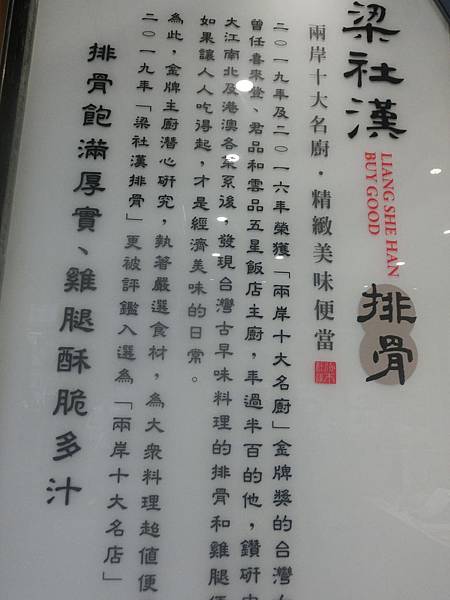 梁社漢
排骨
LIANG SHE HAN
BUY GOOD
兩岸十大名廚．精緻美味便當
二〇一九年及二〇一六年榮獲「兩岸十大名廚」金牌獎的台灣
曾任喜來登、君品和雲品五星飯店主廚，年過半百的他，鑽研中
大江南北及港澳各菜系後，發現台灣古早味料理的排骨和雞腿便
如果讓人人吃得起，才是經濟美味的日常。
為此，金牌主廚潛心研究，執著嚴選食材，為大衆料理超值便
二〇一九年「梁社漢排骨」更被評鑑入選為「兩岸十大名店」
排骨飽滿厚實、雞腿酥脆多汁